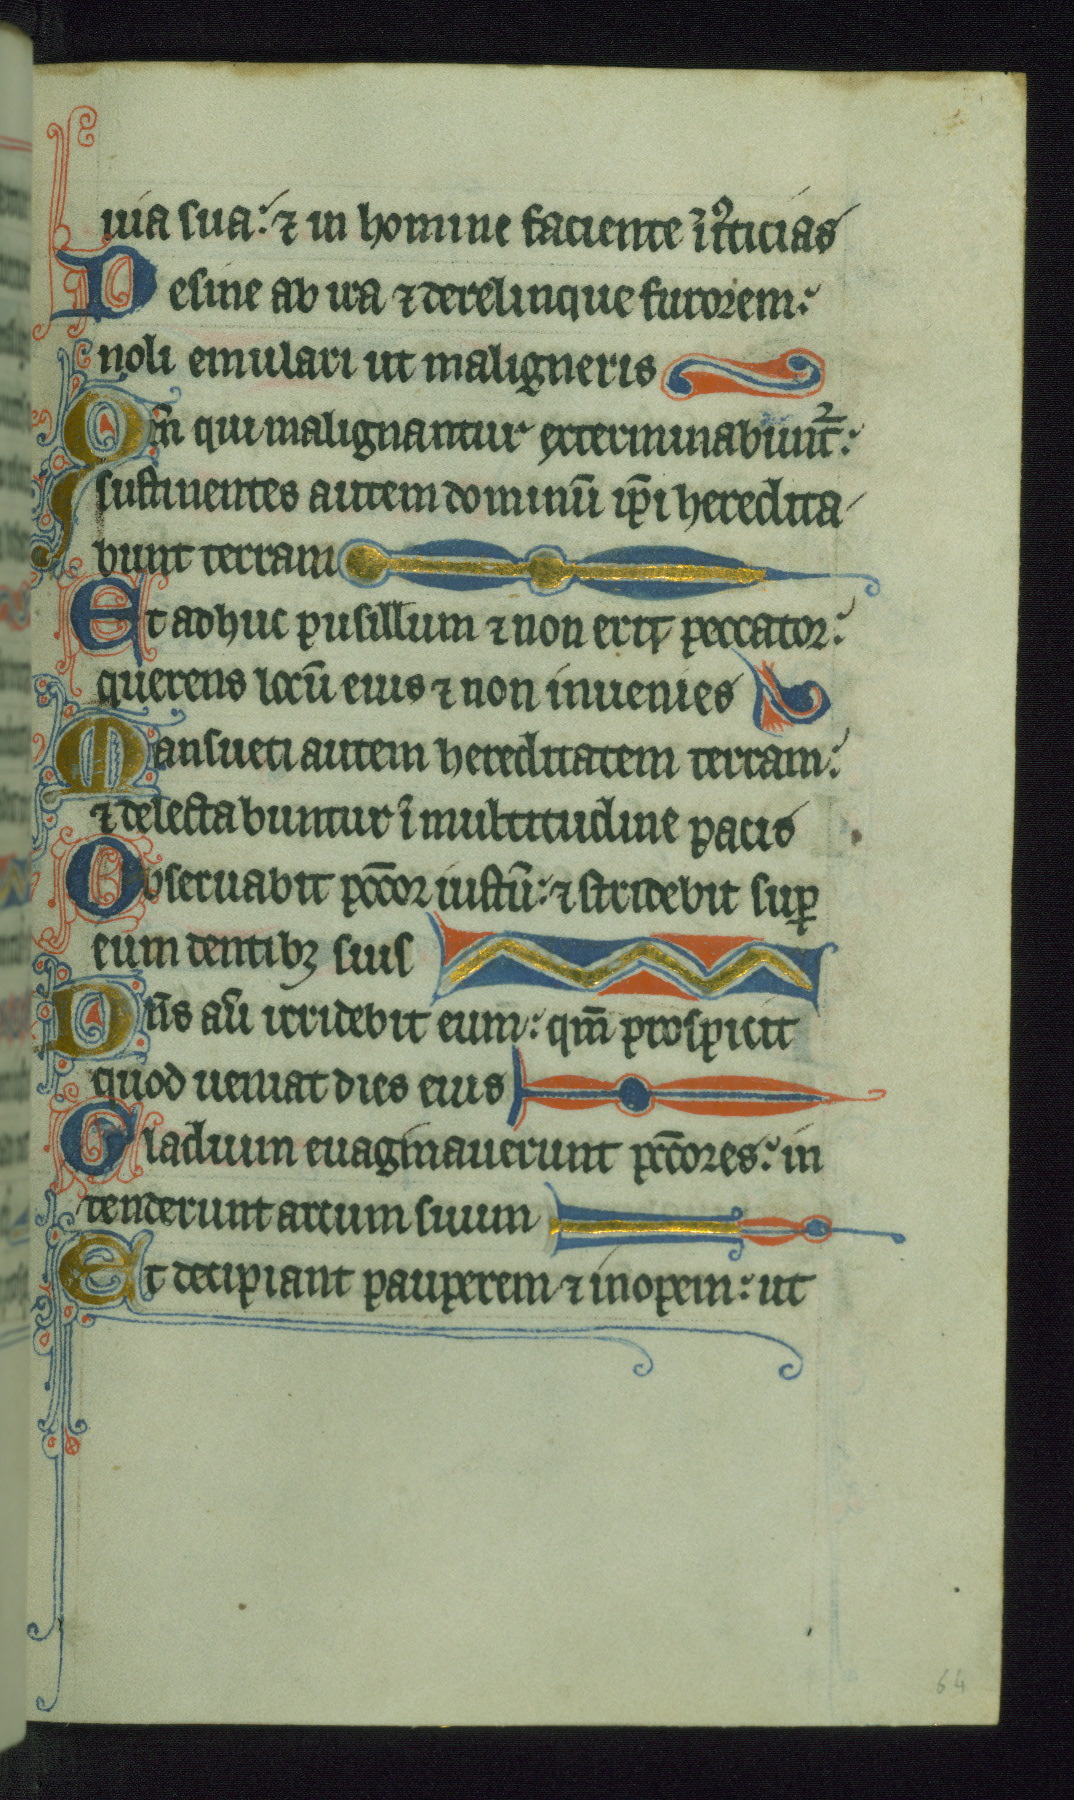 uia sua: ⁊ in homine faciente iı̄ꝰticias
Desine ab ira ⁊ derelinque furorem:
noli emulari ut maligneris
Qm̄ qui malignantur exterminabunt᷑:
sustinentes autem dominū ip̄i heredita
bunt terram
Et adhuc pusillum ⁊ non erit peccator:
querens locū eius ⁊ non inuenies
Mansueti autem hereditatem terram:
⁊ delectabuntur ī multitudine pacis
Obseruabit pc̄cor iustū: ⁊ stridebit suꝑ
eum dentibꝫ suis
Dn̄s aū irridebit eum: qm̄ prospicit
quod ueniat dies eius
Gladium euaginauerunt pc̄cores: in
tenderunt arcum suum
Et decipiant pauperem ⁊ inopem: ut
64